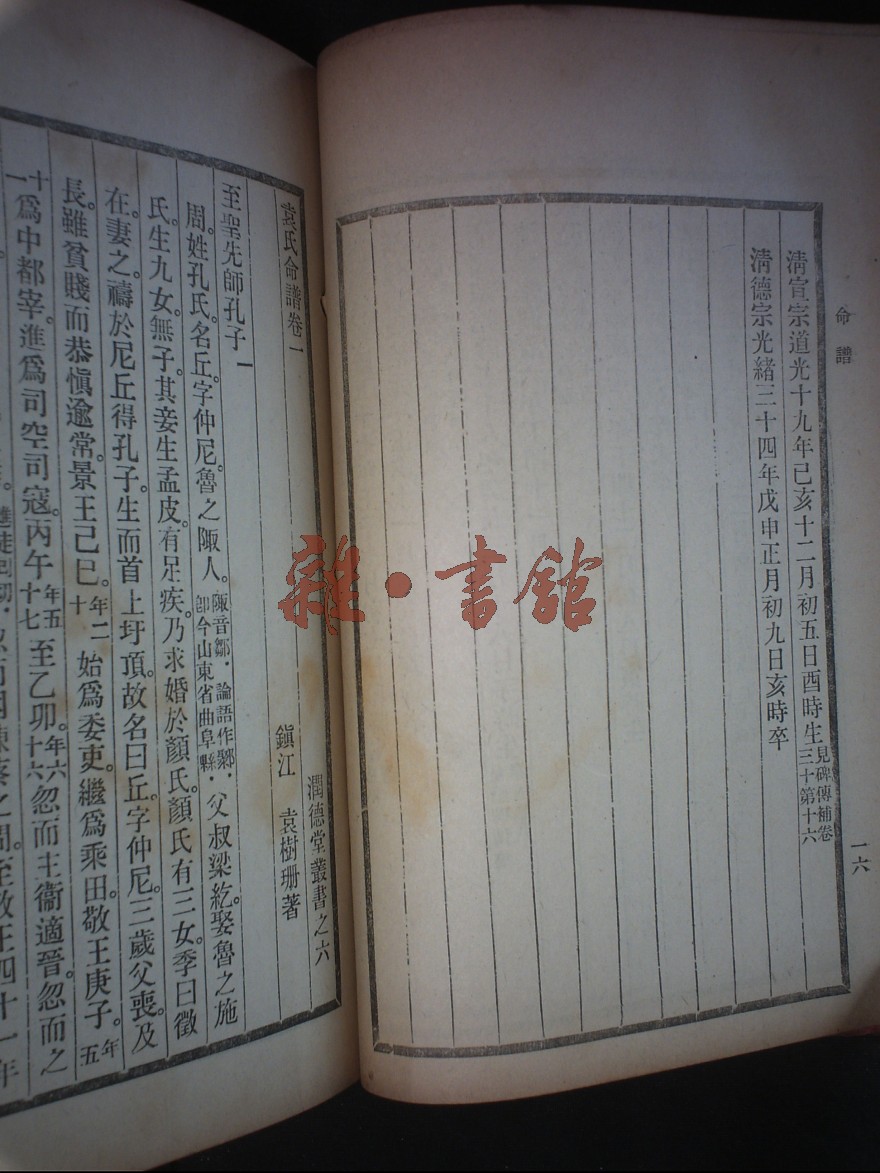 命譜
清宣宗道光十九年己亥十二月初五日酉時生見碑傳補卷三十第十六
清德宗光緒三十四年戊申正月初九日亥時卒
一六
袁氏命譜卷一
潤德堂叢書之六
鎮江 袁樹珊著
至聖先師孔子一
周。姓孔氏。名丘。字仲尼。魯之陬人。陬音鄒．論語作鄹．卽今山東省曲阜縣．父叔梁紇。娶魯之施
氏。生九女。無子。其妾生孟皮。有足疾。乃求婚於顏氏。顏氏有三女。季曰徵
在。妻之。禱於尼丘得孔子。生而首上圩頂。故名曰丘。字仲尼。三歲父喪。及
長。雖貧賤而恭愼逾常。景王己巳。年二十始爲委吏。繼爲乘田。敬王庚子。年五
十一爲中都宰。進爲司空司寇。丙午年五十七至乙卯。年六十六忽而主衞適晉。忽而之
陳蔡之間。至敬王四十一年
雜·書館